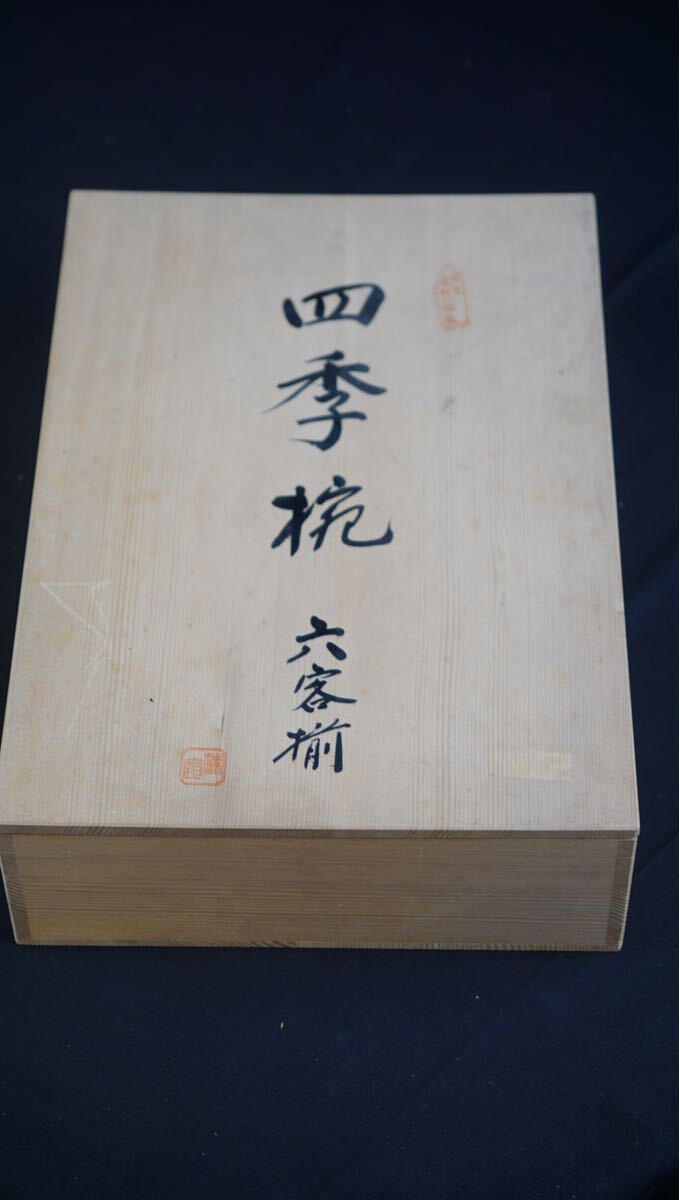 四季椀
六客揃